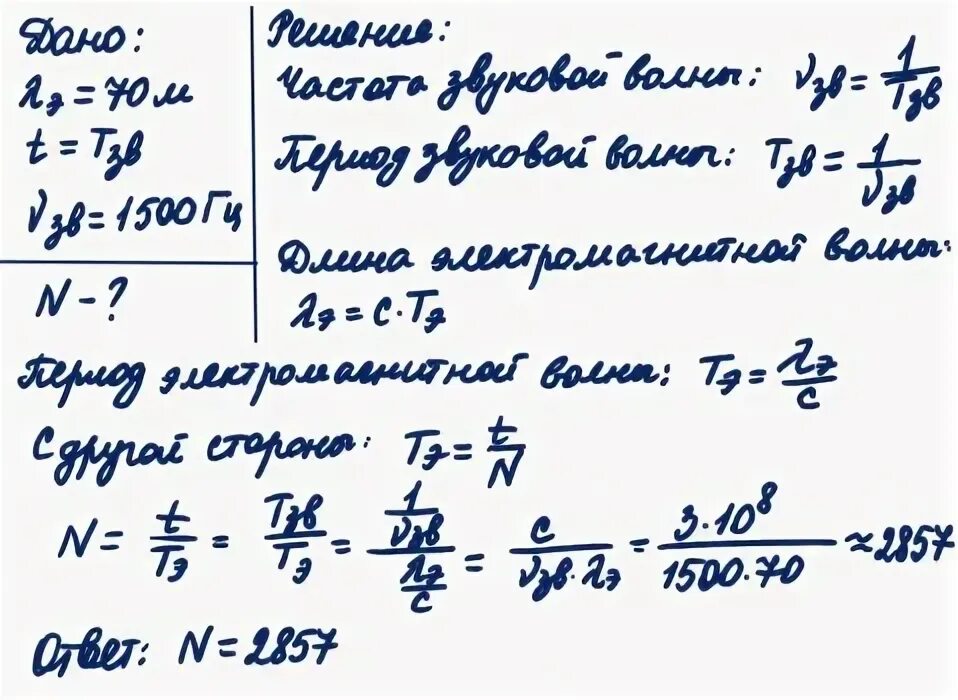 Дано:
λэ = 70 м
t = Tзв
νзв = 1500 Гц
N - ?
Решение:
Частота звуковой волны: νзв = 1/Tзв
Период звуковой волны: Tзв = 1/νзв
Длина электромагнитной волны:
λэ = c · Tэ
Период электромагнитной волны: Tэ = λэ/c
С другой стороны: Tэ = t/N
N = t/Tэ = Tзв/Tэ = (1/νзв)/(λэ/c) = c/(νзв · λэ) = 3 · 10⁸/(1500 · 70) ≈ 2857
Ответ: N = 2857